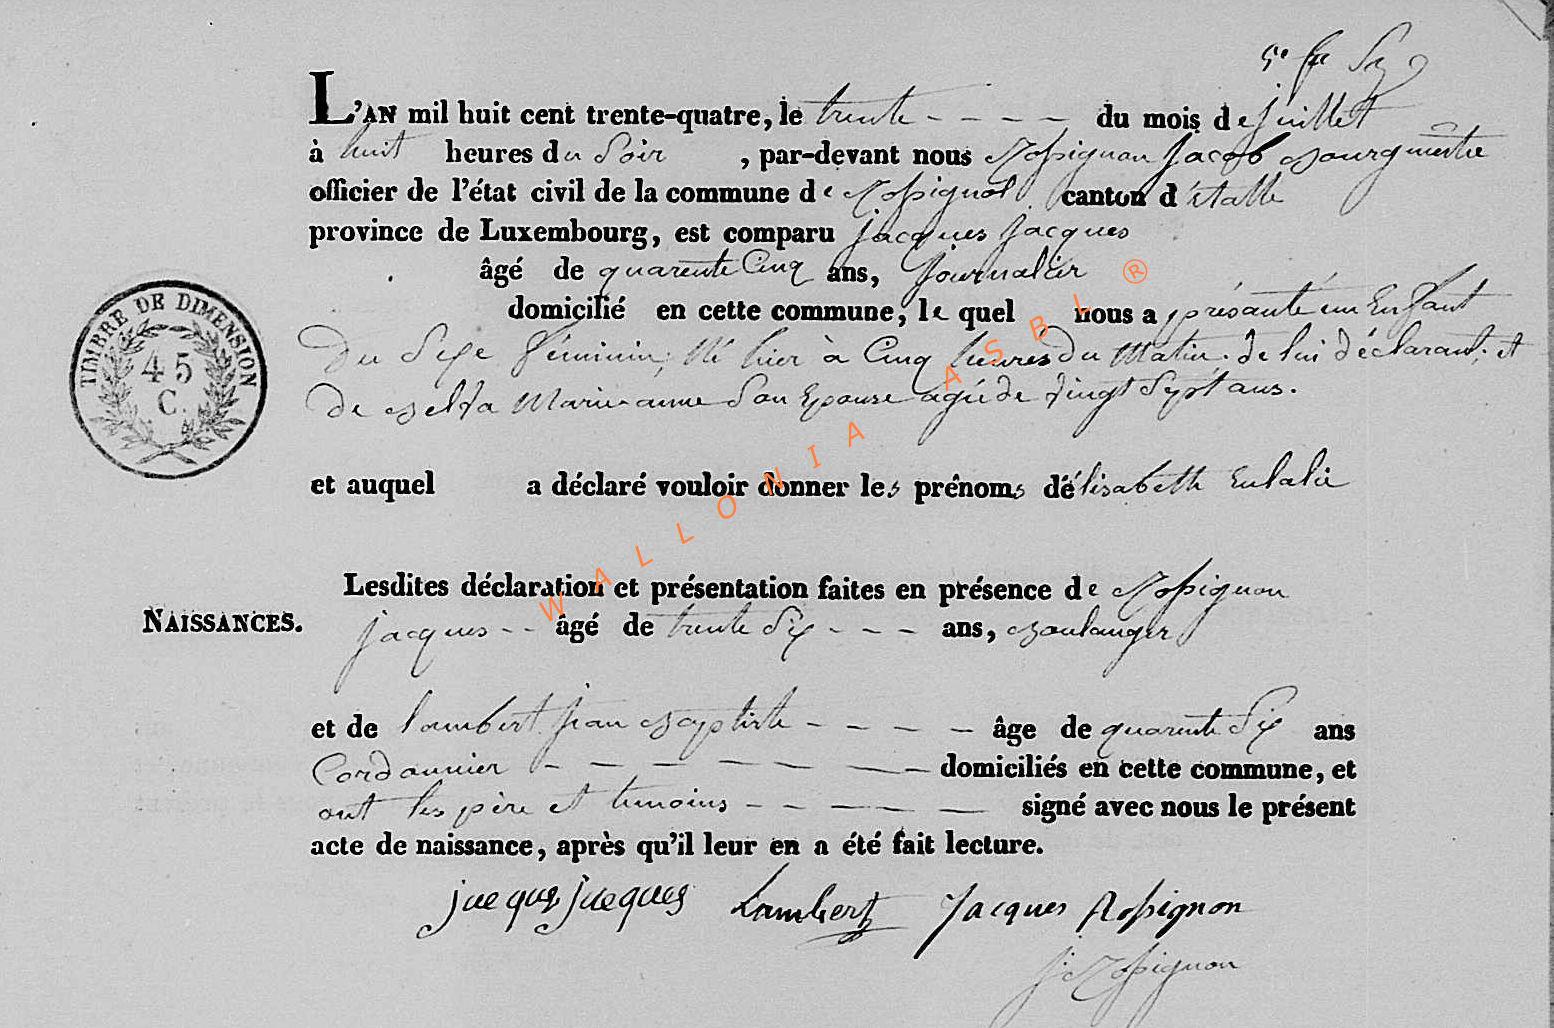 L'AN mil huit cent trente-quatre, le trente - - - - du mois de juillet
à huit heures du Soir , par-devant nous Rossignon Jacob Bourgmestre
officier de l'état civil de la commune de Rossignol canton d'étalle
province de Luxembourg, est comparu jacques jacques
âgé de quarente Cinq ans, Journalier
domicilié en cette commune, le quel nous a présanté un Enfant
TIMBRE DE DIMENSION
45
C.
Du Sexe féminin, Né hier à Cinq heures Du Matin. De lui Déclarant, et
De Marie anne Son Epouse agée de Vingt Sept ans.
et auquel a déclaré vouloir donner les prénoms d'élisabeth Eulalie
Lesdites déclaration et présentation faites en présence de Rossignon
NAISSANCES.
jacques - - âgé de trente Six - - - ans, Boulanger
et de lambert jean Baptiste - - - - - âge de quarente Six ans
Cordonnier - - - - - - - - domiciliés en cette commune, et
ont les père et temoins - - - - - - signé avec nous le présent
acte de naissance, après qu'il leur en a été fait lecture.
jacques jacques Lambert Jacques Rossignon
J Rossignon
WALLONIA ASBL ®